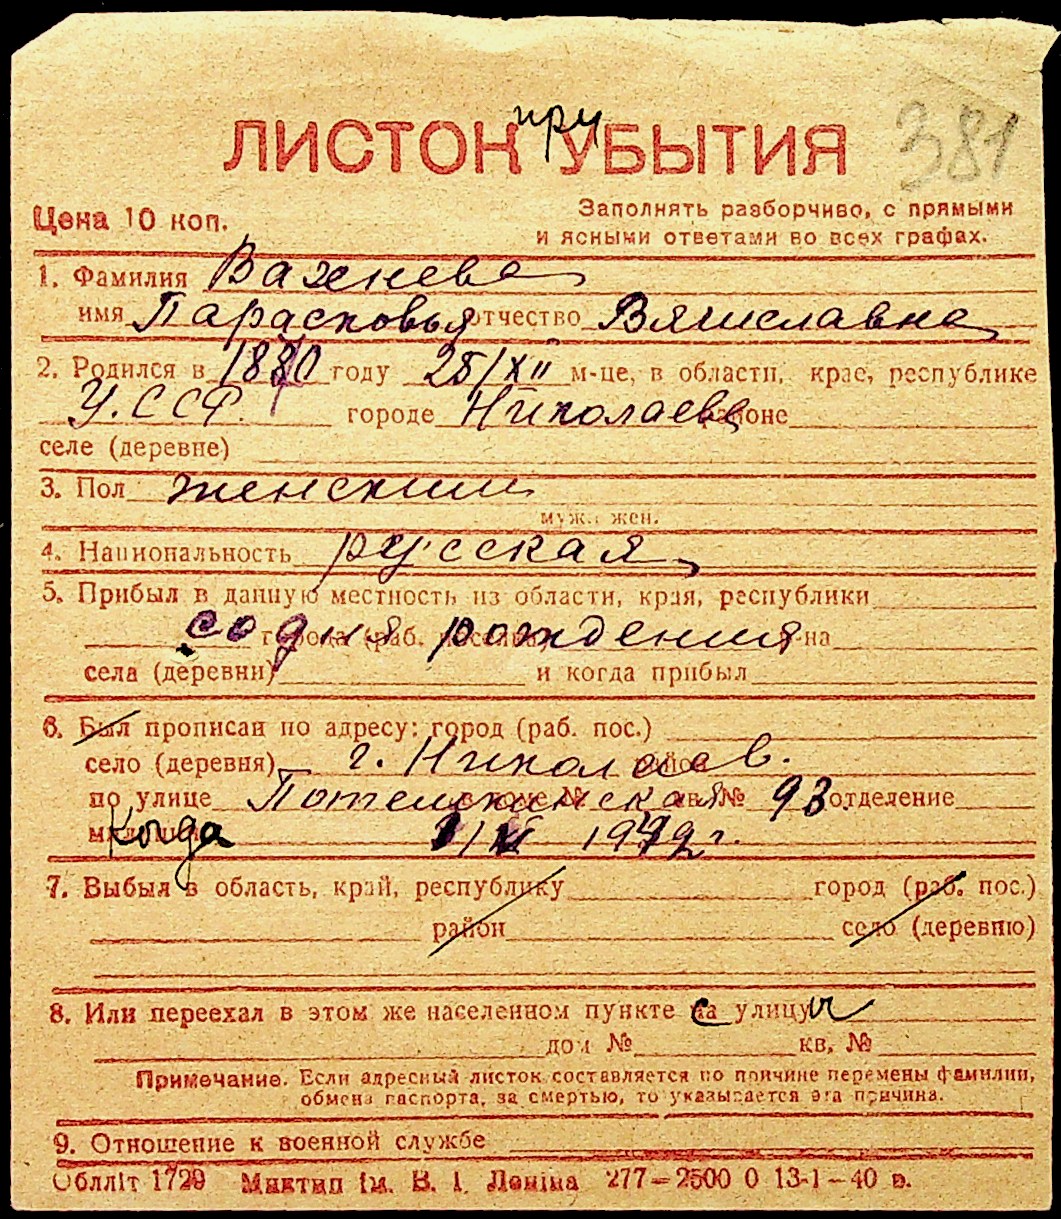 при
ЛИСТОК УБЫТИЯ 381
Цена 10 коп.
Заполнять разборчиво, с прямыми
и ясными ответами во всех графах.
1. Фамилия Важнева
имя Парасковья отчество Вячиславна
2. Родился в 1880 году 25/XII м-це, в области, крае, республике
У.ССР. городе Николаеве районе
селе (деревне)
3. Пол женский
муж., жен.
4. Национальность русская
5. Прибыл в данную местность из области, края, республики
со дня рождения города (раб. поселка) р-на
села (деревни) и когда прибыл
6. Был прописан по адресу: город (раб. пос.)
село (деревня) г. Николаев. район
по улице Потемкинская в доме № кв. № 93 отделение
милиции Когда 1942 г.
7. Выбыл в область, край, республику город (раб. пос.)
район село (деревню)
8. Или переехал в этом же населенном пункте на с улицу и
дом № кв. №
Примечание. Если адресный листок составляется по причине перемены фамилии,
обмена паспорта, за смертью, то указывается эта причина.
9. Отношение к военной службе
Обллiт 1729 Миктип iм. В. I. Ленiна 277—2500 0 13-1—40 в.